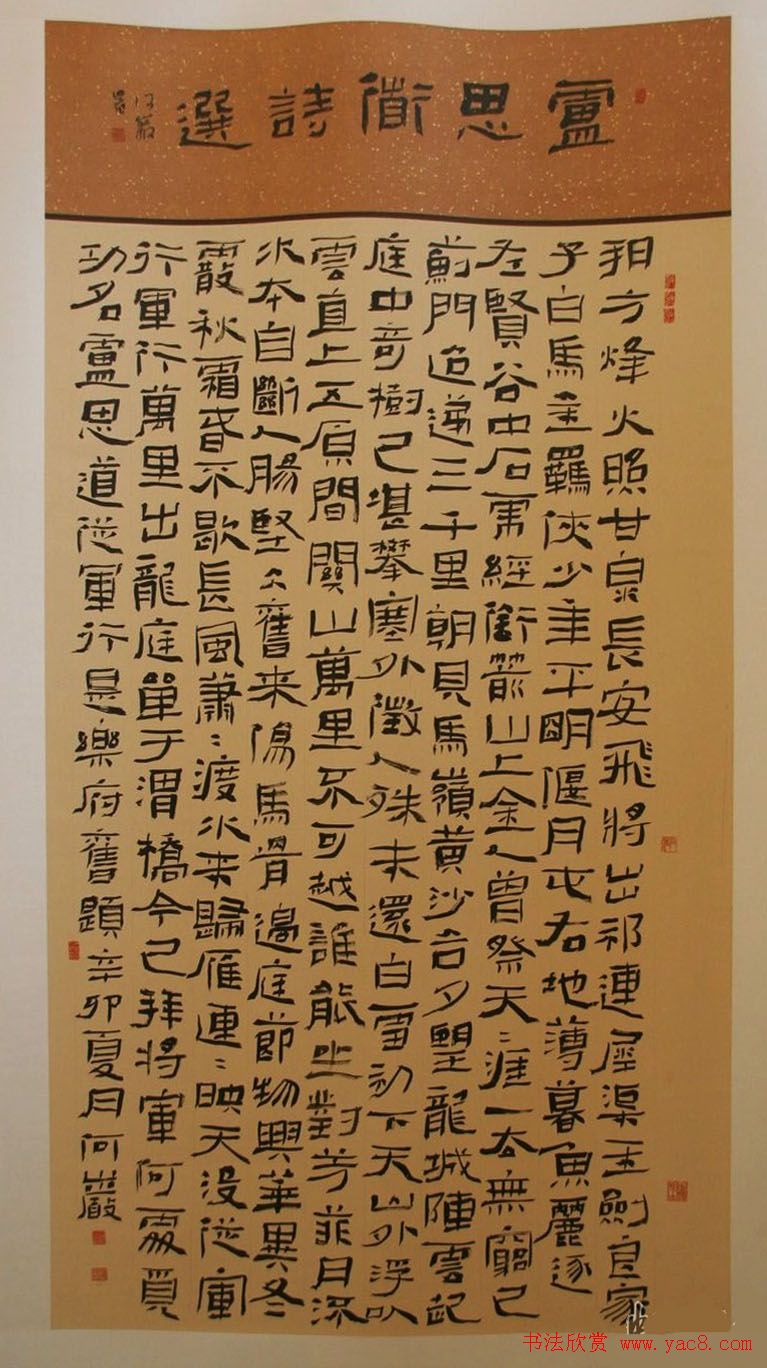 盧思衜詩選
朔方烽火照甘泉長安飛將出祁連犀渠玉劍良家
子白馬金羈俠少年平明偃月屯右地薄暮魚麗逐
左賢谷中石虎經銜箭山上金人曾祭天〻涯一去無窮已
薊門迢遞三千里朝見馬嶺黃沙合夕望龍城陣雲起
庭中奇樹已堪攀塞外徵人殊未還白雪初下天山外浮
雲直上五原間關山萬里不可越誰能坐對芳菲月流
水本自斷人腸堅冰舊來傷馬骨邊庭節物與華異冬
霰秋霜春不歇長風蕭〻渡水來歸雁連〻映天沒從軍
行軍行萬里出龍庭單于渭橋今已拜將軍何處覓
功名盧思道從軍行是樂府舊題辛卯夏月何巖
书法欣赏 www.yac8.com